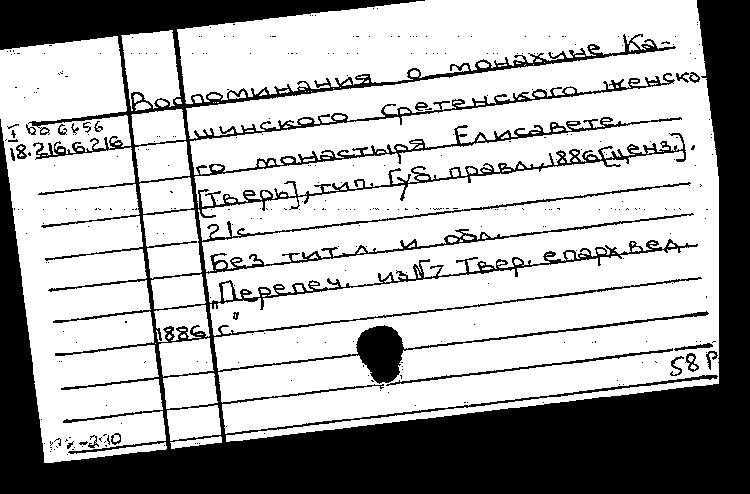 Воспоминания о монахине Ка-
18.216.6.216
шинского Сретенского женско-
го монастыря Елисавете.
[Тверь], тип. Губ. правл., 1886[ценз.].
21с.
Без тит.л. и обл.
"Перепеч. из №7 Твер. епарх.вед.
1886 г."
58 Р